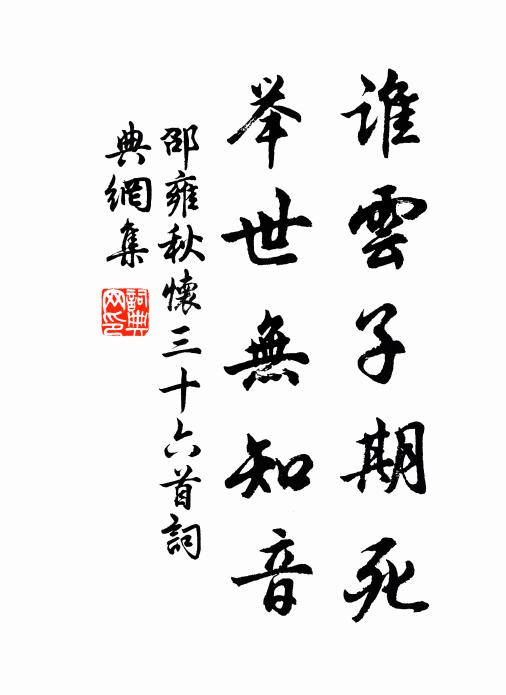 誰雲子期死
举世無知音
邵雍秋懷三十六首詞
典網集
詞典
网印